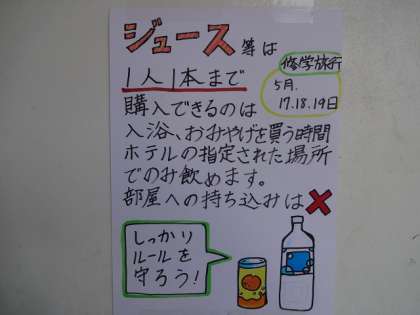 ジュース等は
修学旅行
5月.
17.18.19日
1人1本まで
購入できるのは
入浴、おみやげを買う時間
ホテルの指定された場所
でのみ飲めます。
部屋への持ち込みは❌
しっかり
ルールを
守ろう!